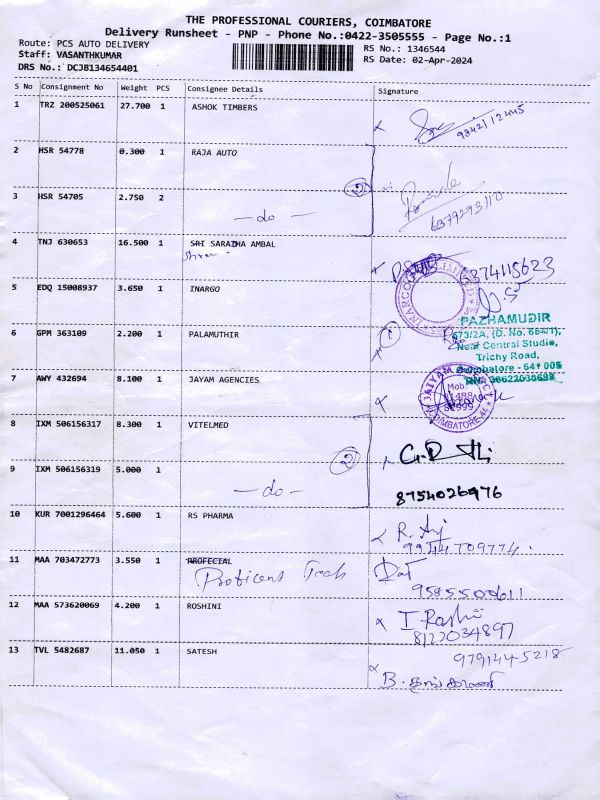 THE PROFESSIONAL COURIERS, COIMBATORE
Delivery Runsheet - PNP - Phone No.:0422-3505555 - Page No.:1
Route: PCS AUTO DELIVERY
RS No.: 1346544
Staff: VASANTHKUMAR
RS Date: 02-Apr-2024
DRS No.: DCJB134654401
S No Consignment No Weight PCS Consignee Details Signature
1 TRZ 200525061 27.700 1 ASHOK TIMBERS
98421 12445
2 HSR 54778 0.300 1 RAJA AUTO
2
3 HSR 54705 2.750 2
- do -
6379293110
4 TNJ 630653 16.500 1 SRI SARADHA AMBAL
6374115623
5 EDQ 15008937 3.650 1 INARGO
PAZHAMUDIR
673/2A, (D. No. 664/1),
6 GPM 363109 2.200 1 PALAMUTHIR
1
Near Central Studio,
Trichy Road,
Coimbatore - 641 005
7 AWY 432694 8.100 1 JAYAM AGENCIES
Mob.
COIMBATORE-44
8 IXM 506156317 8.300 1 VITELMED
2
9 IXM 506156319 5.000 1
- do -
8754026976
10 KUR 7001296464 5.600 1 RS PHARMA
99447 09774
11 MAA 703472773 3.550 1 PROFECIAL
9585500611
12 MAA 573620069 4.200 1 ROSHINI
8122034897
13 TVL 5482687 11.050 1 SATESH
979144-5218